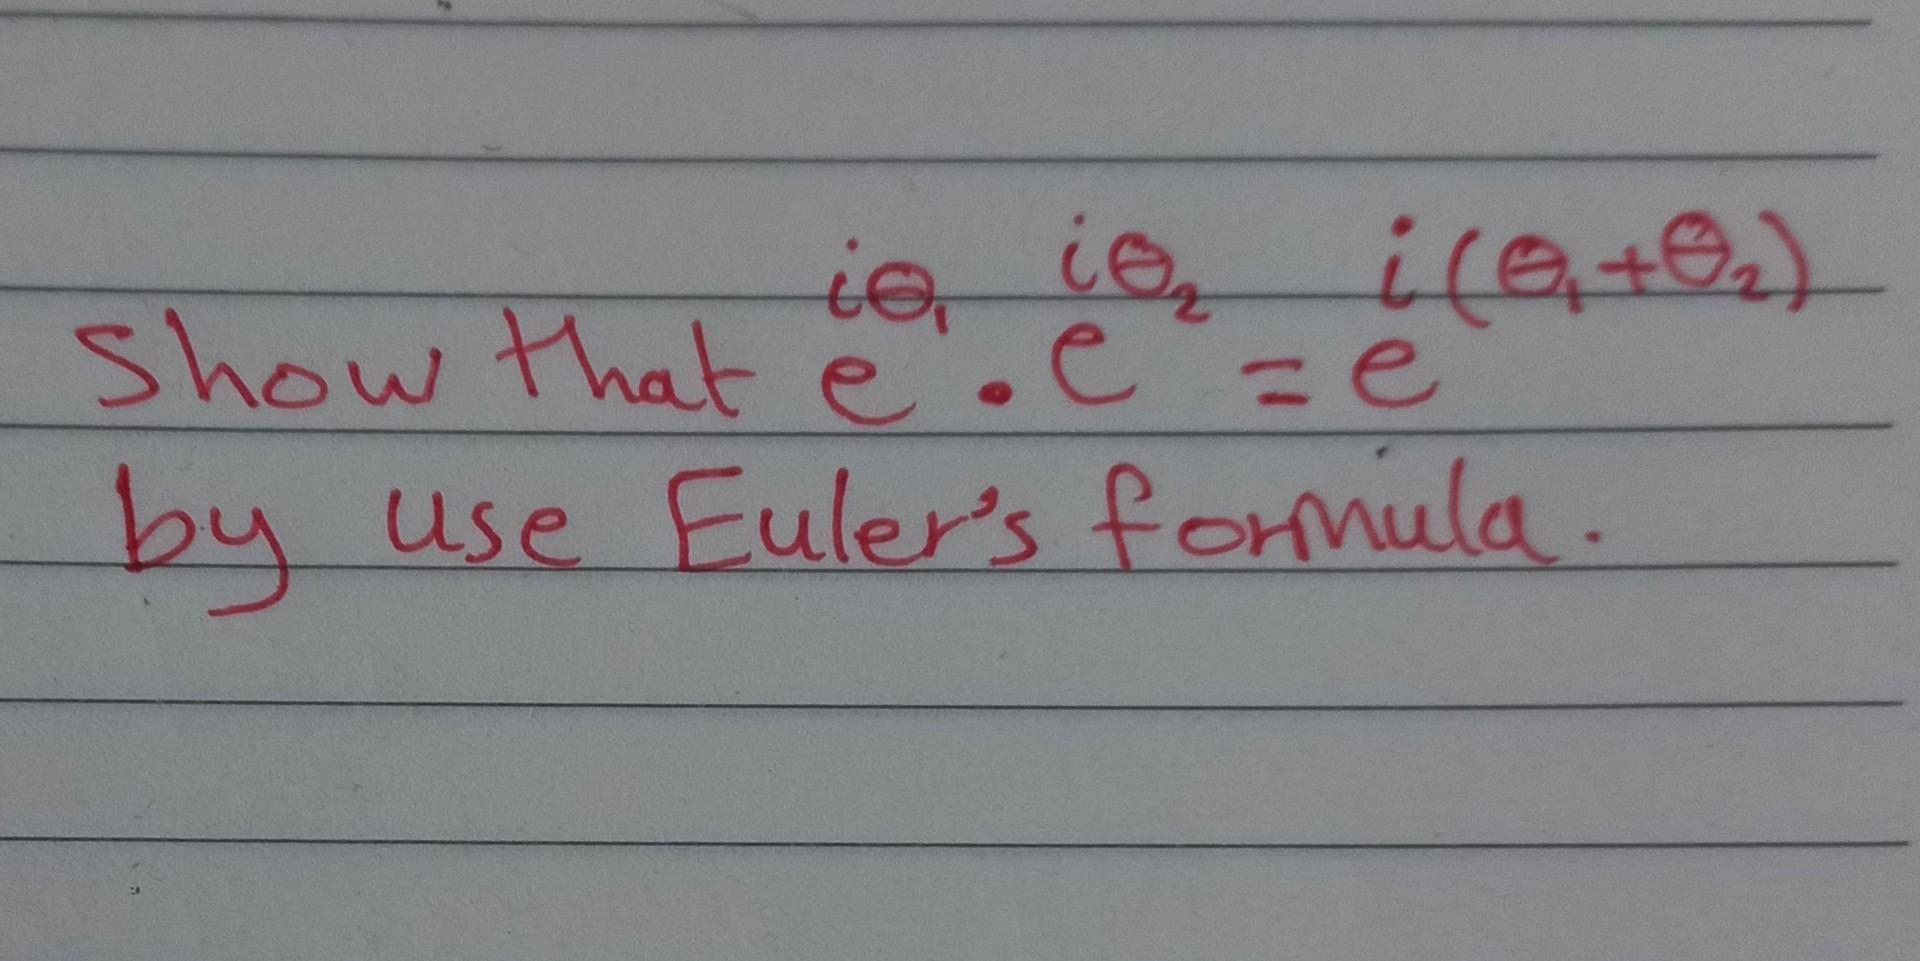 Show that e^{iθ₁} · e^{iθ₂} = e^{i(θ₁+θ₂)}
by use Euler's formula.